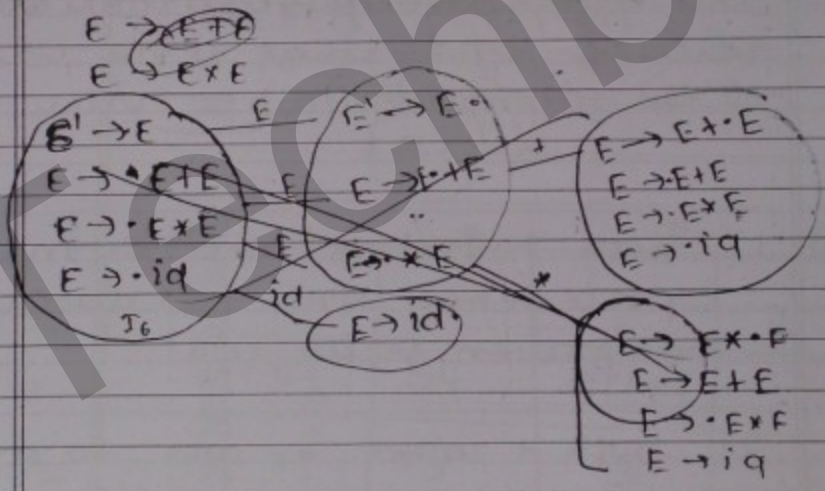 E → E+E
E → E*E
E' → E
E → • E+E
E → • E*E
E → • id
I6
E
E
E
id
E' → E•
E → E•+E
E → • * E
E → id•
+
*
E → E+•E
E → •E+E
E → •E*E
E → •id
E → E*•E
E → E+E
E → •E*E
E → id
Techn